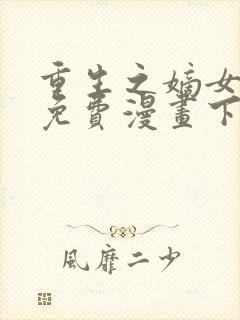 重生之嫡女
免費漫畫下
風靡二少